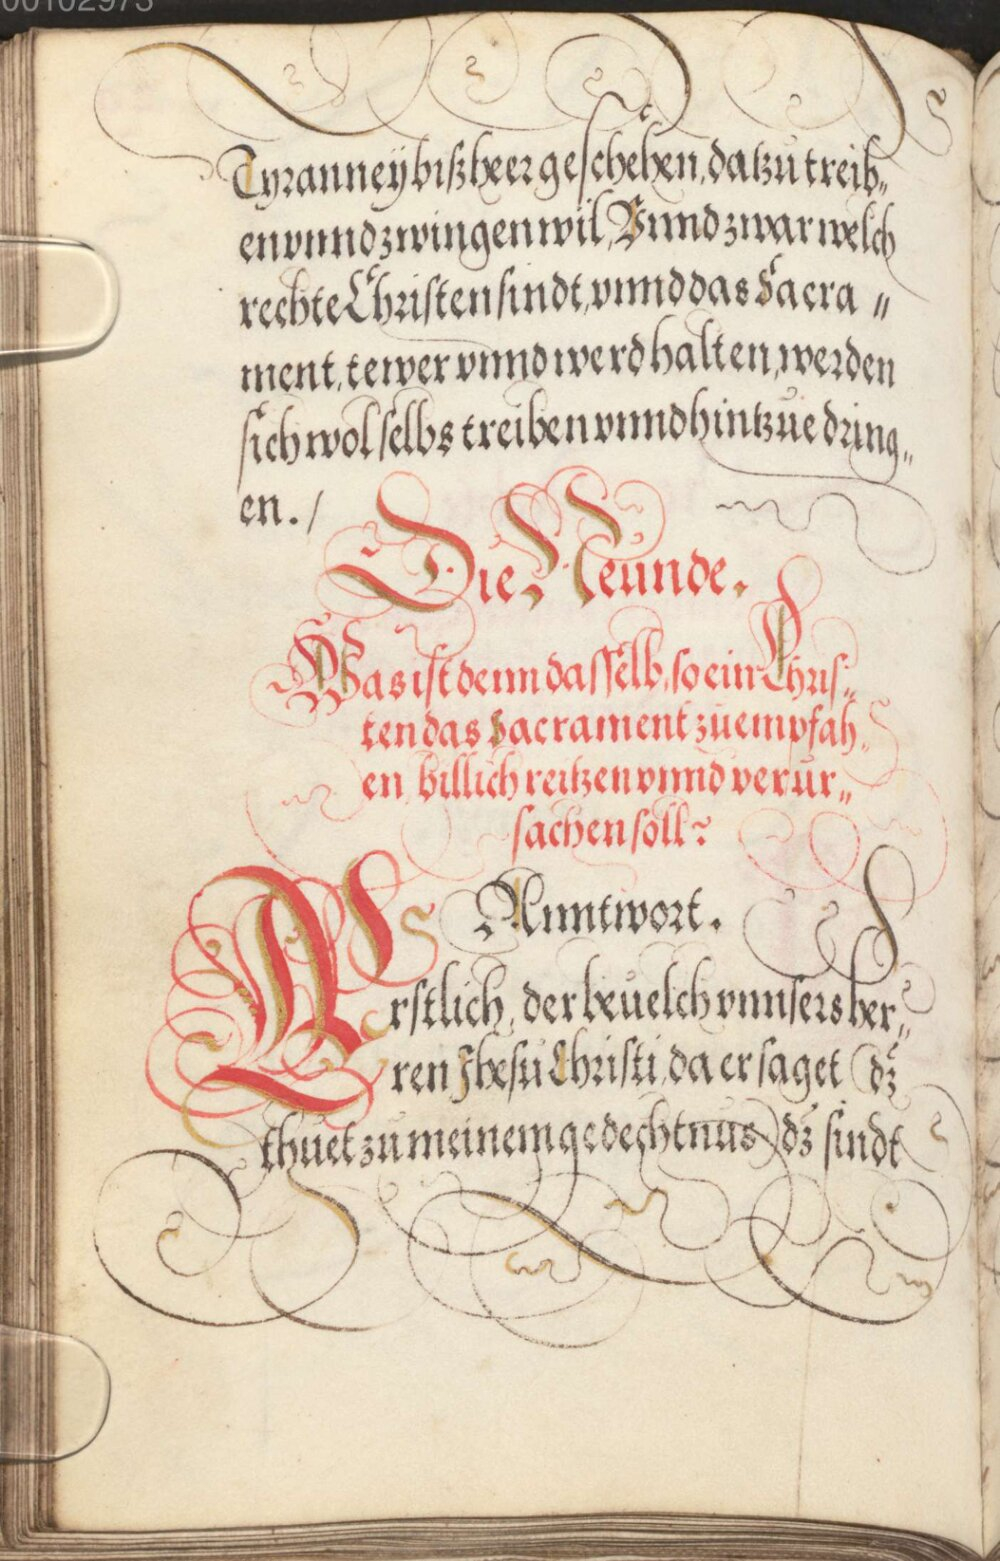 00102973
Tyranney bißheer geschehen, datzu treib„
en vnnd zwingen wil, Vnnd zwar welch
rechte Christen sindt, vnnd das Sacra „
ment, tewer vnnd werd halten, werden
sich wol selbs treiben vnnd hintzue dring„
en. /
Die Neunde.
Was ist denn dasselb, so ein Chris„
ten das Sacrament zu empfah„
en billich reitzen vnnd verur„
sachen soll?
Anntwort.
Erstlich, der beuelch vnnsers her„
ren Jhesu Christi, da er saget (dz
thuet zu meinem gedechtnus) dz sindt